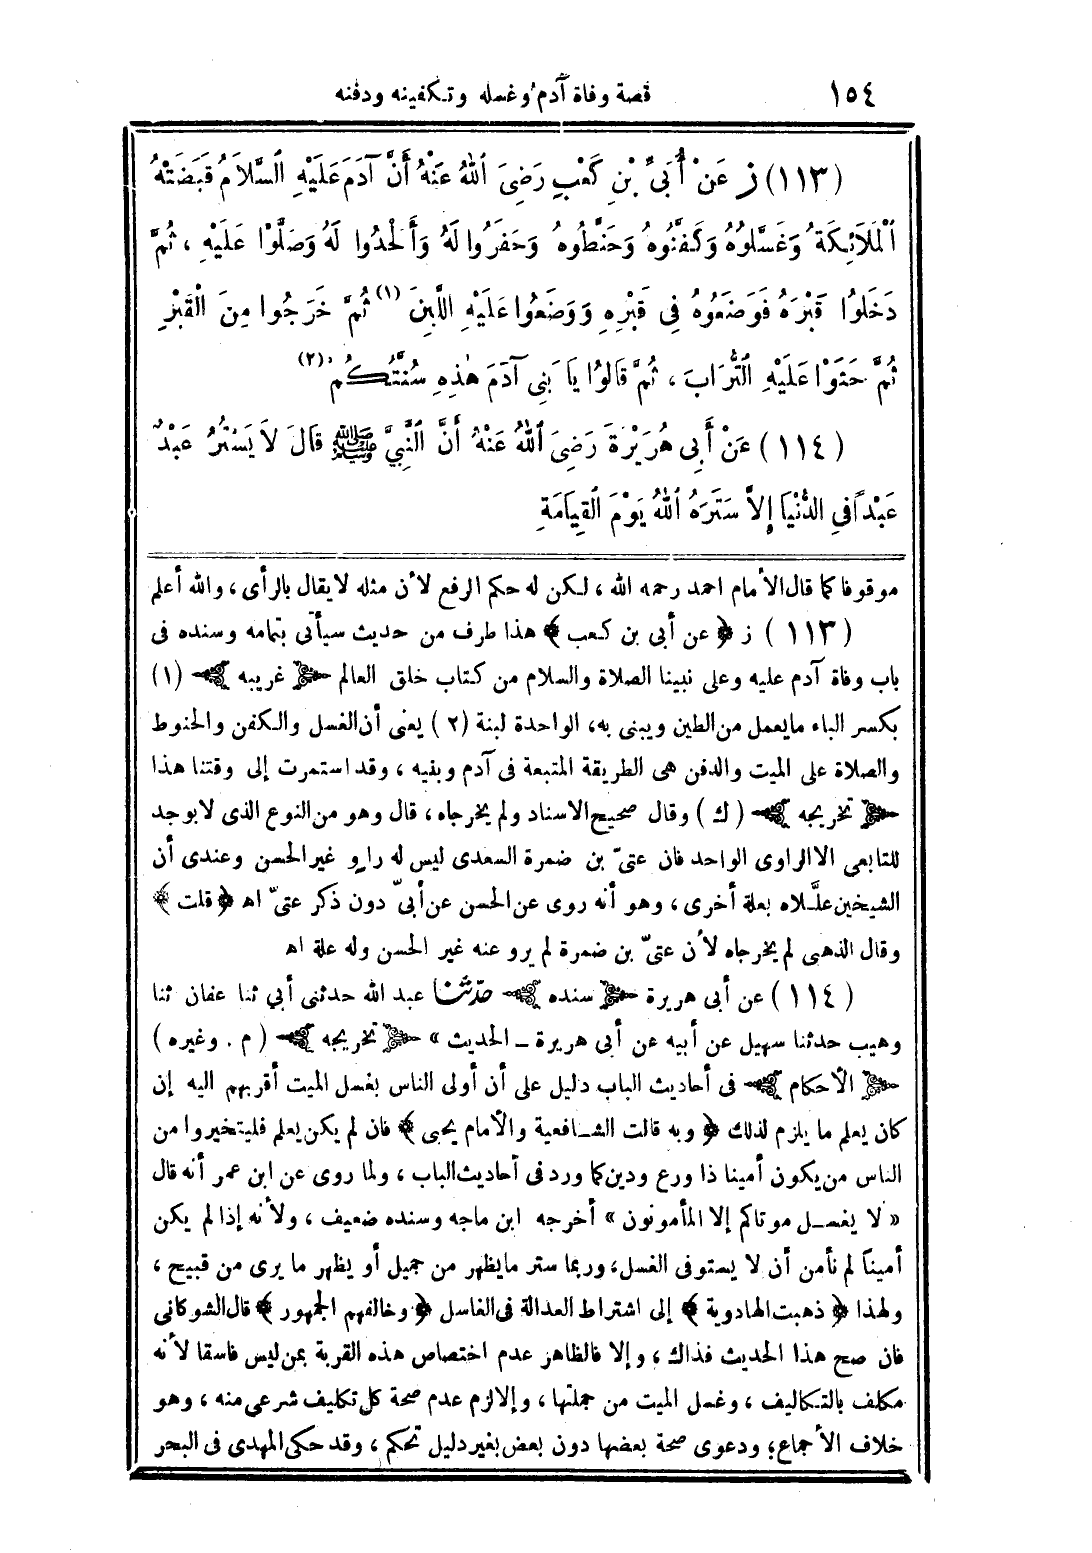 ١٥٤ قصة وفاة آدم وغسله وتكفينه ودفنه
(١١٣) ز عَنْ أُبَىِّ بْنِ كَعْبٍ رَضِىَ اللهُ عَنْهُ أَنَّ آدَمَ عَلَيْهِ السَّلَامُ قَبَضَتْهُ
الْمَلَائِكَةُ وَغَسَّلُوُهُ وَكَفَّنُوهُ وَحَنَّطُوهُ وَحَفَرُوا لَهُ وَأَلْحَدُوا لَهُ وَصَلَّوْا عَلَيْهِ ، ثُمَّ
دَخَلُوا قَبْرَهُ فَوَضَعُوهُ فِى قَبْرِهِ وَوَضَعُوا عَلَيْهِ اللَّبِنَ (١) ثُمَّ خَرَجُوا مِنَ الْقَبْرِ
ثُمَّ حَثَوْا عَلَيْهِ التُّرَابَ ، ثُمَّ قَالُوا يَا بَنِى آدَمَ هٰذِهِ سُنَّتُكُمْ (٢)
(١١٤) عَنْ أَبِى هُرَيْرَةَ رَضِىَ اللهُ عَنْهُ أَنَّ النَّبِيَّ ﷺ قَالَ لَا يَسْتُرُ عَبْدٌ
عَبْداً فِى الدُّنْيَا إِلاَّ سَتَرَهُ اللهُ يَوْمَ الْقِيَامَةِ
موقوفا كما قال الأمام احمد رحمه الله ، لكن له حكم الرفع لأن مثله لا يقال بالرأى ، والله أعلم
(١١٣) ز ﴿ عن أبى بن كعب ﴾ هذا طرف من حديث سيأتى بتمامه وسنده فى
باب وفاة آدم عليه وعلى نبينا الصلاة والسلام من كتاب خلق العالم ﴿ غريبه ﴾ (١)
بكسر الباء ما يعمل من الطين ويبنى به، الواحدة لبنة (٢) يعنى أن الغسل والكفن والحنوط
والصلاة على الميت والدفن هى الطريقة المتبعة فى آدم وبنيه ، وقد استمرت إلى وقتنا هذا
﴿ تخريجه ﴾ (ك) وقال صحيح الاسناد ولم يخرجاه ، قال وهو من النوع الذى لا يوجد
للتابعى الا الراوى الواحد فان عتىّ بن ضمرة السعدى ليس له راو غير الحسن وعندى أن
الشيخين علَّلاه بعلة أخرى ، وهو أنه روى عن الحسن عن أبىّ دون ذكر عتىّ اه ﴿ قلت ﴾
وقال الذهبى لم يخرجاه لأن عتىّ بن ضمرة لم يرو عنه غير الحسن وله علة اه
(١١٤) عن أبى هريرة ﴿ سنده ﴾ حدّثنا عبد الله حدثنى أبي ثنا عفان ثنا
وهيب حدثنا سهيل عن أبيه عن أبى هريرة ـ الحديث » ﴿ تخريجه ﴾ (م . وغيره)
﴿ الأحكام ﴾ فى أحاديث الباب دليل على أن أولى الناس بغسل الميت أقربهم اليه إن
كان يعلم ما يلزم لذلك ﴿ وبه قالت الشافعية والأمام يحيى ﴾ فان لم يكن يعلم فليتخيروا من
الناس من يكون أمينا ذا ورع ودين كما ورد فى أحاديث الباب ، ولما روى عن ابن عمر أنه قال
« لا يغسل موتاكم إلا المأمونون » أخرجه ابن ماجه وسنده ضعيف ، ولأنه إذا لم يكن
أميناً لم نأمن أن لا يستوفى الغسل، وربما ستر ما يظهر من جميل أو يظهر ما يرى من قبيح ،
ولهذا ﴿ ذهبت الهادوية ﴾ إلى اشتراط العدالة فى الغاسل ﴿ وخالفهم الجمهور ﴾ قال الشوكانى
فان صح هذا الحديث فذاك ، وإلا فالظاهر عدم اختصاص هذه القربة بمن ليس فاسقا لأنه
مكلف بالتكاليف ، وغسل الميت من جملتها ، وإلا لزم عدم صحة كل تكليف شرعى منه ، وهو
خلاف الأجماع؛ ودعوى صحة بعضها دون بعض بغير دليل تحكم ، وقد حكى المهدى فى البحر